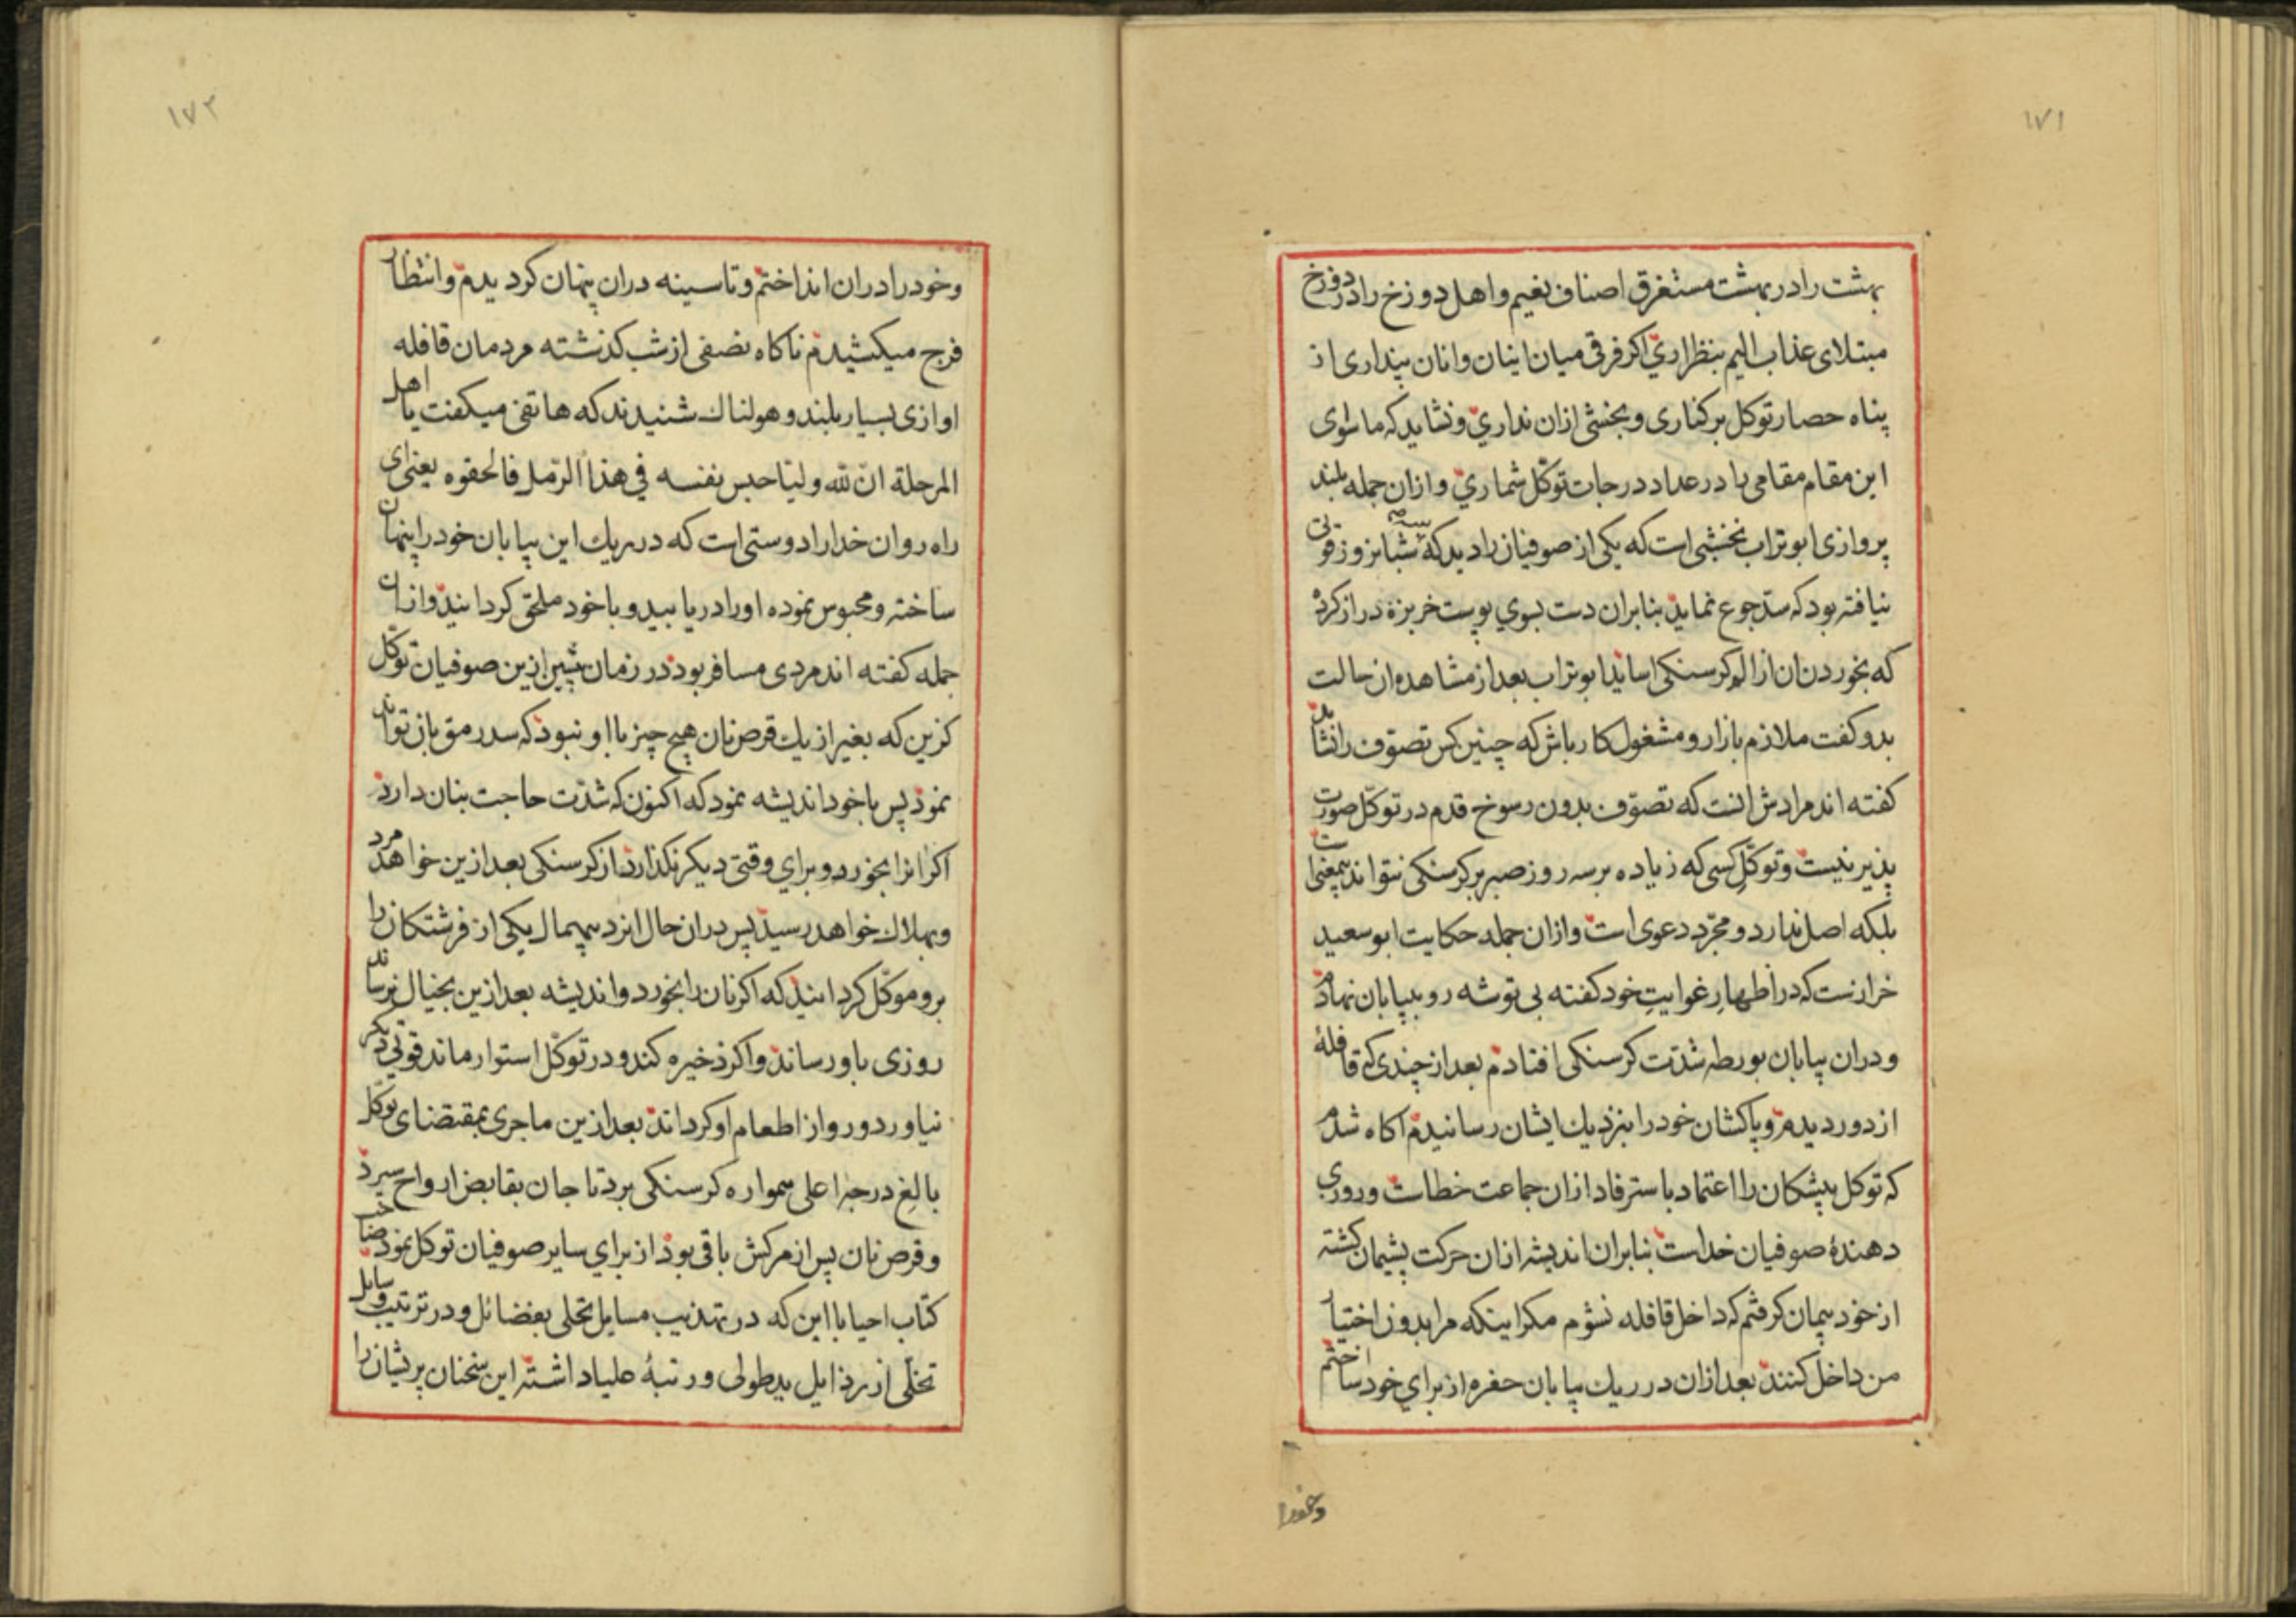 ۱۷۱
بهشت را در بهشت مستغرق اصناف نعیم و اهل دوزخ را در دوزخ
مبتلای عذاب الیم بنظر اری اکر فرقی میان اینان و انان پنداری از
پناه حصار توکل بر کناری و بخشی ازان نداری و نشاید که ماسوای
این مقام مقامی را در عداد درجات توکّل شماری و ازان جمله بلند
پروازی ابوتراب نخشبی است که یکی از صوفیان را دید که سه شبانروز قوتی
نیافته بود که سدّ جوع نماید بنابران دست بسوی پوست خربزه دراز کرد
که بخوردن ان از الم کرسنکی اساید ابوتراب بعد از مشاهده ان حالت
بدو کفت ملازم بازار و مشغول کار باش که چنین کس تصوّف را نشاید
کفته اند مرادش انست که تصوّف بدون رسوخ قدم در توکّل صورت
پذیر نیست و توکّلِ کسی که زیاده بر سه روز صبر بر کرسنکی نتواند بیمعنی است
بلکه اصل ندارد و مجرّد دعوی است و ازان جمله حکایت ابوسعید
خرازست که در اظهارِ غوایتِ خود کفته بی توشه رو ببیابان نهادم
و دران بیابان بورطه شدّت کرسنکی افتادم بعد از چندی که قافلهٔ
از دور دیدم و پاکشان خود را بنزدیك ایشان رسانیدم اکاه شدم
که توکل پیشکان را اعتماد باسترفاد ازان جماعت خطاست و روزی
دهندهٔ صوفیان خداست بنابران اندیشه ازان حرکت پشیمان کشته
از خود پیمان کرفتم که داخل قافله نشوم مکر اینکه مرا بدون اختیار
من داخل کنند بعد ازان در ریك بیابان حفره از برای خود ساختم
و خود را
۱۷۲
و خود را دران انداختم و تا سینه دران پنهان کردیدم و انتظار
فرج میکشیدم ناکاه نصفی از شب کذشته مردمان قافله
اوازی بسیار بلند و هولناك شنیدند که هاتفی میکفت یا اهل
المرحلة انّ لله ولیّا حبس نفسه في هذا الرّمل فالحقوه یعنی ای
راه روان خدا را دوستی است که در ریك این بیابان خود را پنهان
ساخته و محبوس نموده او را دریابید و با خود ملحق کردانید و ازان
جمله کفته اند مردی مسافر بود در زمان پیش ازین صوفیان توکّل
کزین که بغیر از یك قرص نان هیچ چیز با او نبود که سد رمق بان تواند
نمود پس با خود اندیشه نمود که اکنون که شدّت حاجت بنان دارد
اکر انرا بخورد و برای وقتی دیکر نکذارد از کرسنکی بعد ازین خواهد مرد
و بهلاك خواهد رسید پس دران حال ایزد بیهمال یکی از فرشتکان را
برو موکّل کردانید که اکر نان را بخورد و اندیشه بعد ازین بخیال نرساند
روزی باو رساند و اکر ذخیره کند و در توکّل استوار ماند قوتی دیکر
نیاورد و رو از اطعام او کرداند بعد ازین ماجری بمقتضای توکّل
بالغِ درجه اعلی همواره کرسنکی برد تا جان بقابض ارواح سپرد
و قرص نان پس از مرکش باقی بود از برای سایر صوفیان توکل نمود
کتاب احیا با این که در تهذیب مسایل تحلی بفضائل و در ترتیب وسایل
تخلّی از رذایل ید طولی و رتبهٔ علیا داشته این سخنان پریشان را